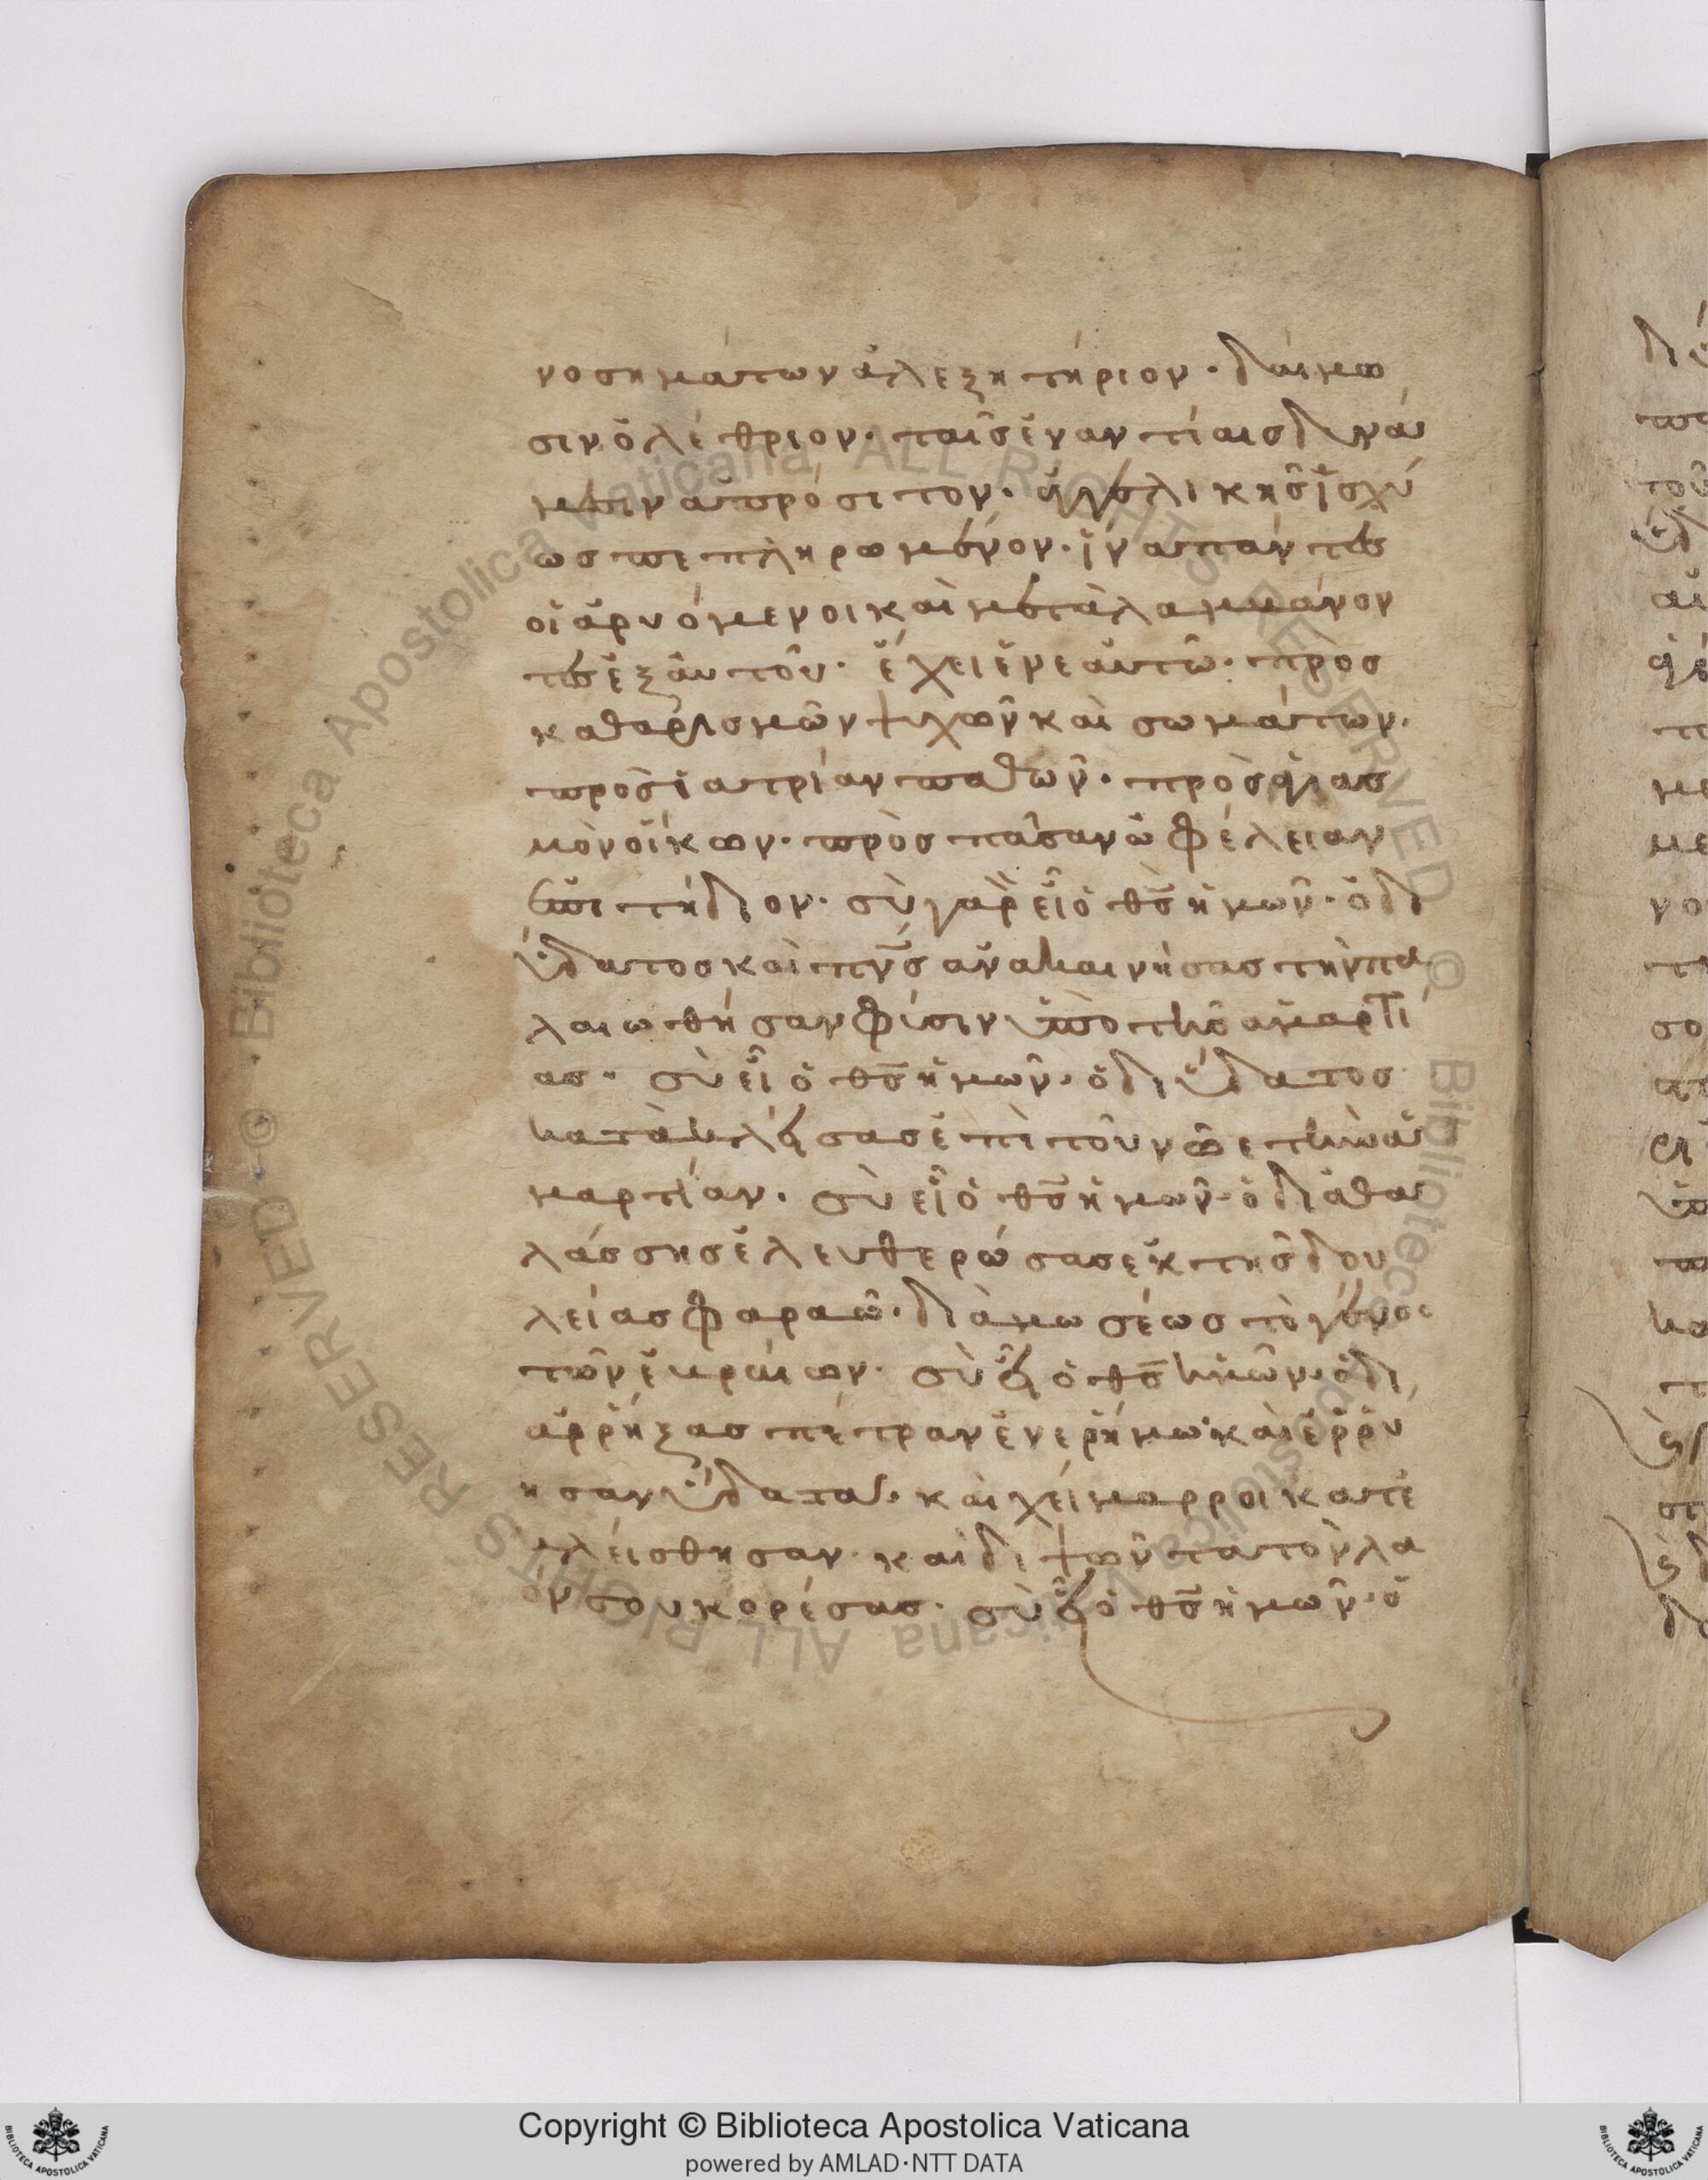 νοσημάτων ἀλεξητήριον· δαίμω
σιν ὀλέθριον· ταῖς ἐναντίαις δυνά
μεσιν ἀπρόσιτον· ἀγγελικῆς ἰσχύ
ος πεπληρωμένον· ἵνα πάντες
οἱ ἀρυόμενοι καὶ μεταλαμβάνον
τες ἐξ αὐτοῦ· ἔχειεν ἑαυτῶ· πρὸς
καθαρισμὸν ψυχῶν καὶ σωμάτων·
πρὸς ἰατρίαν παθῶν· πρὸς ἁγιασ
μὸν οἴκων· πρὸς πᾶσαν ὠφέλειαν
ἐπιτήδιον· σὺ γὰρ εἶ ὁ θς ἡμῶν· ὁ δι
ὕδατος καὶ πνς ἀνακαινήσας τὴν πα
λαιωθήσαν φύσιν ὑπὸ τῆς ἁμαρτί
ας· σὺ εἶ ὁ θς ἡμῶν· ὁ δι ὕδατος
κατακλείσας ἐπὶ τοῦ νῶε τὴν ἁ
μαρτίαν· σὺ εἶ ὁ θς ἡμῶν· ὁ διὰ θα
λάσσης ἐλευθερώσας ἐκ τῆς δου
λείας φαραῶ· διὰ μωσέως τὸ γένος
τῶν ἑβραίων· σὺ εἶ ὁ θς ἡμῶν· ὁ δι
αρρήξας πέτραν ἐν ἐρήμω· καὶ ἐρρύ
ησαν ὕδατα· καὶ χείμαρροι κατε
κλείσθησαν· καὶ διψῶντα τὸν λα
ὸν σου κορέσας· σὺ εἶ ὁ θς ἡμῶν· ὁ
Copyright © Biblioteca Apostolica Vaticana
powered by AMLAD·NTT DATA